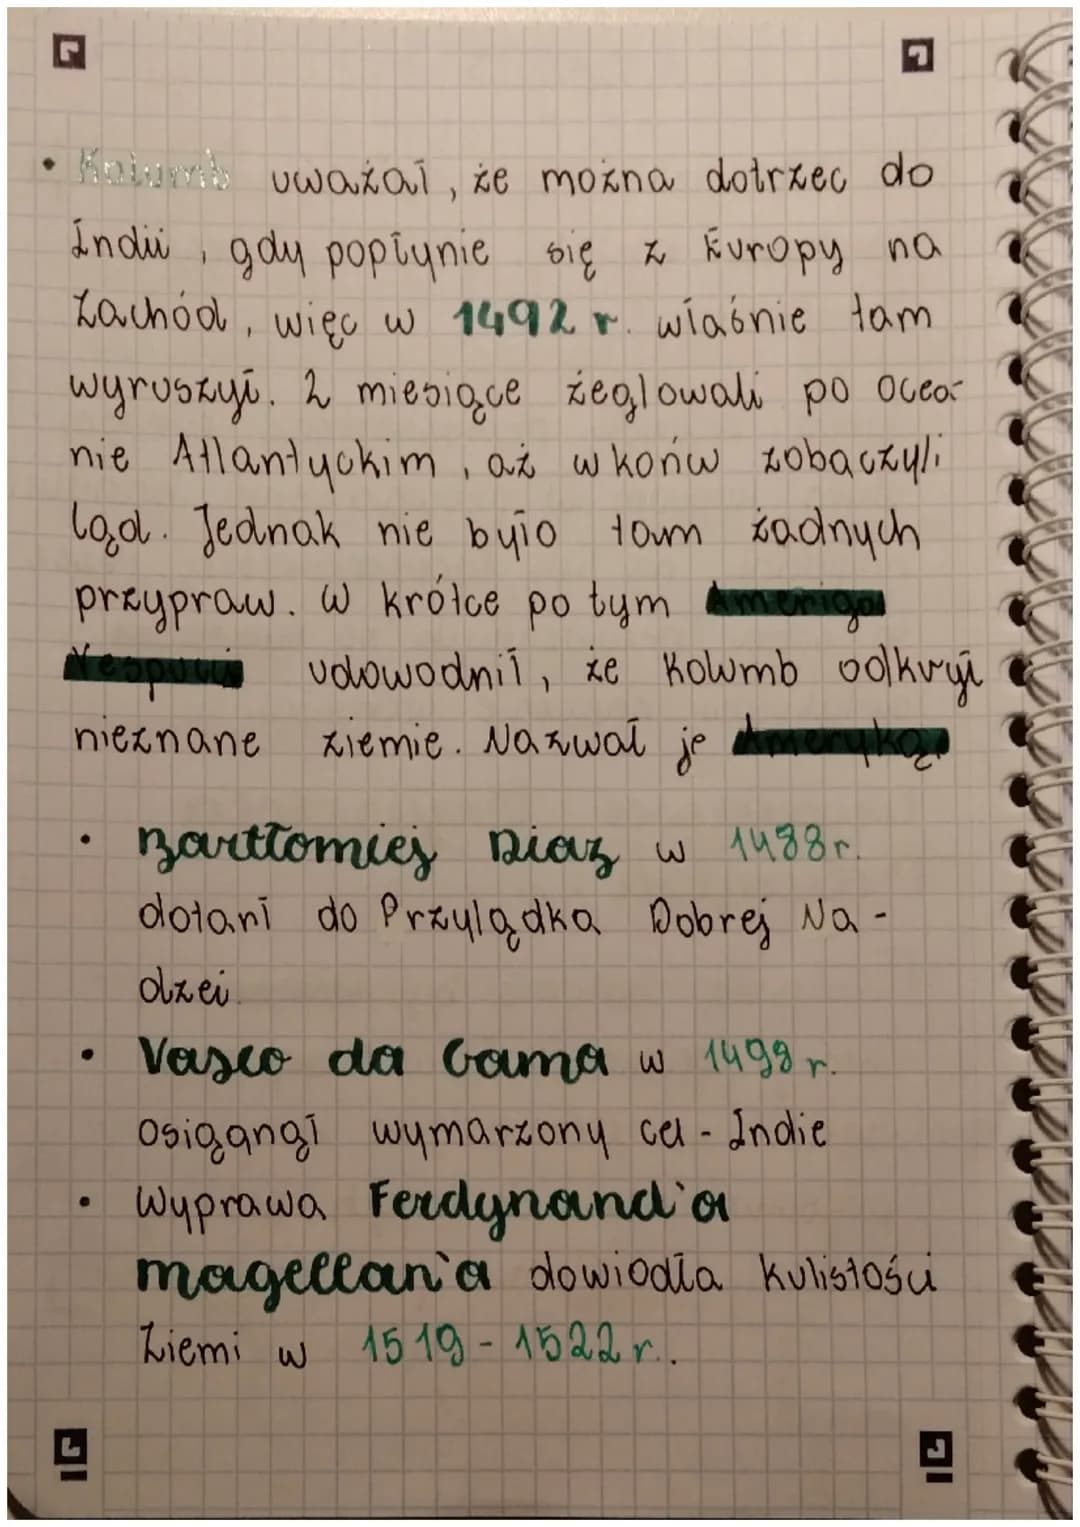 • Kolumb uważał, że można dotrzec do
Indii, gdy popłynie się z Europy na
Zachód, więc w 1492 r. właśnie tam
wyruszył. 2 miesiące żeglowali po ocea-
nie Atlantyckim, aż w końcu zobaczyli
ląd. Jednak nie było tam żadnych
przypraw. W krótce po tym Amerigo
Vespucci udowodnił, że Kolumb odkrył
nieznane ziemie. Nazwał je Ameryką.
• Barttomiej Diaz w 1488r.
dotarł do Przylądka Dobrej Na-
dziei.
• Vasco da Gama w 1498 r.
osigągnął wymarzony cel - Indie
• Wyprawa Ferdynand'a
magellan'a dowiodła kulistości
Ziemi w 1519 - 1522 r..